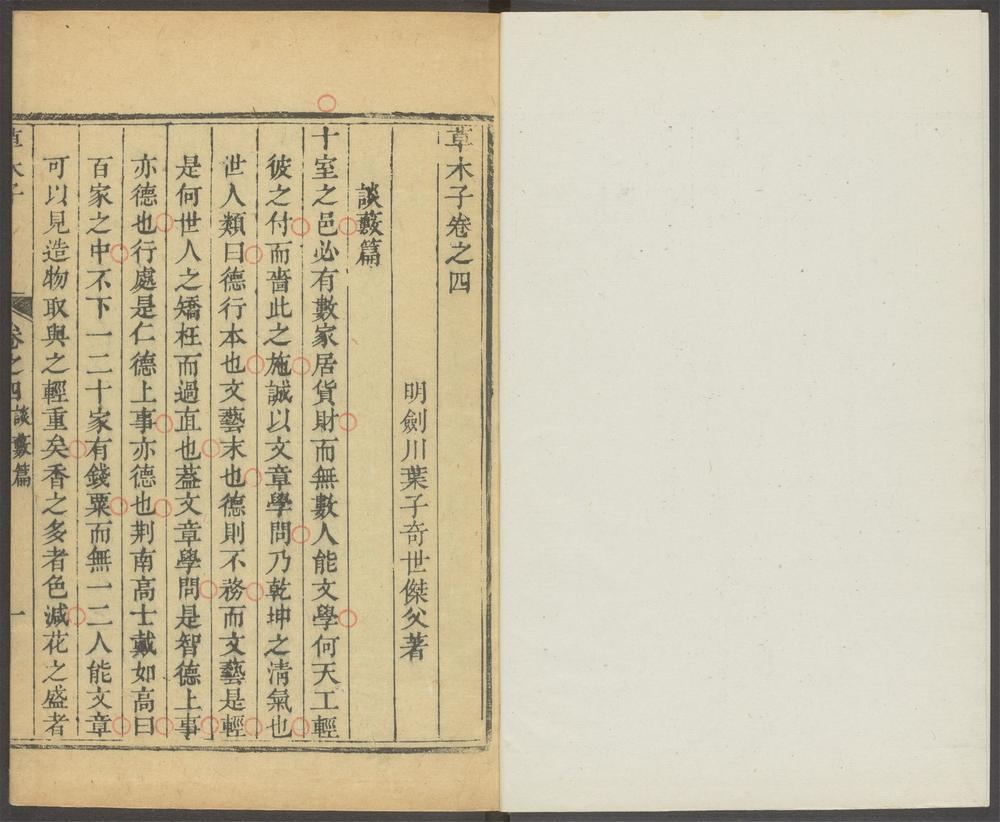 草木子卷之四
明劍川葉子奇世傑父著
談藪篇
十室之邑必有數家居貨財而無數人能文學何天工輕
彼之付而嗇此之施誠以文章學問乃乾坤之清氣也
世人類曰德行本也文藝末也德則不務而文藝是輕
是何世人之矯枉而過直也葢文章學問是智德上事
亦德也行處是仁德上事亦德也荆南高士戴如高曰
百家之中不下一二十家有錢粟而無一二人能文章
可以見造物取與之輕重矣香之多者色減花之盛者
草木子
卷之四 談藪篇
一